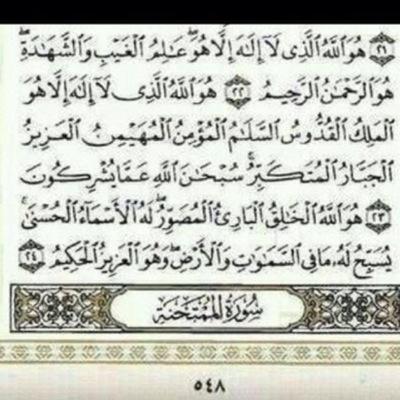 ٢١ هُوَ اللَّهُ الَّذِى لَآ إِلَٰهَ إِلَّا هُوَ ۖ عَٰلِمُ الْغَيْبِ وَالشَّهَٰدَةِ ۖ
هُوَ الرَّحْمَٰنُ الرَّحِيمُ ٢٢ هُوَ اللَّهُ الَّذِى لَآ إِلَٰهَ إِلَّا هُوَ
الْمَلِكُ الْقُدُّوسُ السَّلَٰمُ الْمُؤْمِنُ الْمُهَيْمِنُ الْعَزِيزُ
الْجَبَّارُ الْمُتَكَبِّرُ ۚ سُبْحَٰنَ اللَّهِ عَمَّا يُشْرِكُونَ
٢٣ هُوَ اللَّهُ الْخَٰلِقُ الْبَارِئُ الْمُصَوِّرُ ۖ لَهُ الْأَسْمَآءُ الْحُسْنَىٰ ۚ
يُسَبِّحُ لَهُۥ مَا فِى السَّمَٰوَٰتِ وَالْأَرْضِ ۖ وَهُوَ الْعَزِيزُ الْحَكِيمُ ٢٤
سُورَةُ الْمُمْتَحَنَةِ
٥٤٨